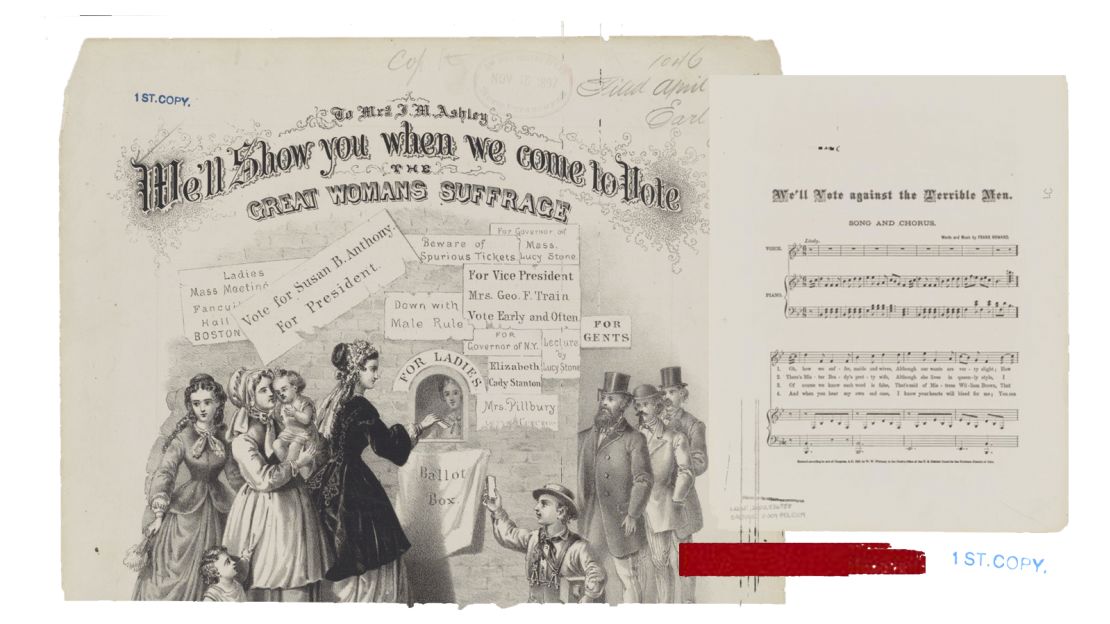 1ST.COPY.
1046
Filed April
Earl
To Mrs J.M.Ashley
We'll Show you when we come to Vote
THE
GREAT WOMANS SUFFRAGE
Ladies
Mass Meeting
Hall
BOSTON
Vote for Susan B. Anthony.
For President.
Beware of
Spurious Tickets
For Governor of
Mass.
Lucy Stone
For Vice President
Mrs. Geo. F. Train
Vote Early and Often
Down with
Male Rule
FOR
Governor of N.Y.
Elizabeth
Cady Stanton
Lecture
by
Lucy Stone
Mrs. Pillbury
FOR
GENTS
FOR LADIES
Ballot
Box.
We'll Vote against the Terrible Men.
SONG AND CHORUS.
Words and Music by FRANK HOWARD.
Lively.
VOICE.
PIANO.
1. Oh, how we suf - fer, maids and wives, Although our wants are ve - ry slight; How
2. There's Mis - ter Bra - dy's pret - ty wife, Although she lives in queen - ly style, I
3. Of course we know each word is false, That's said of Mis - tress Wil - liam Brown, That
4. And when you hear my own sad case, I know your hearts will bleed for me; You see
1ST.COPY.